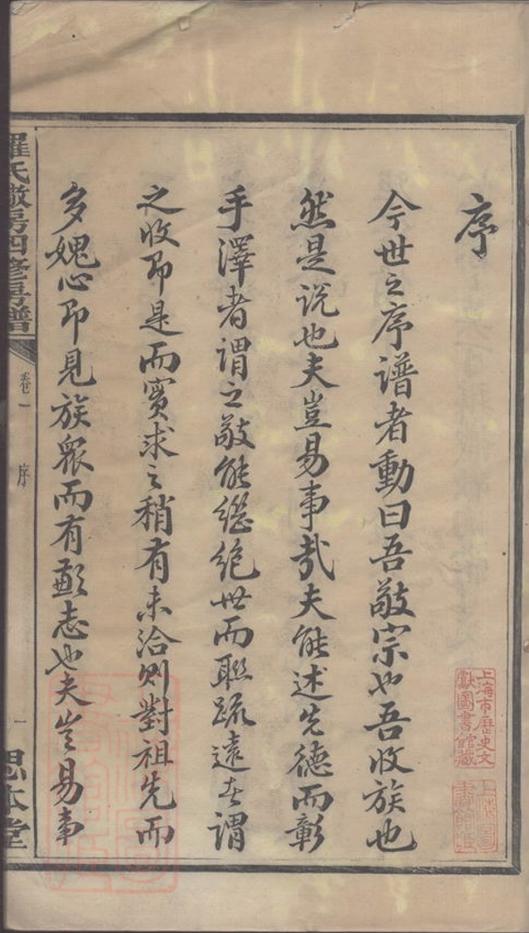 序
今世之序谱者動曰吾敬宗也吾收族也
然是说也夫豈易事哉夫能述先德而彰
手澤者谓之敬能继绝世而聯疏遠者谓
之收即是而實求之稍有未洽则對祖先而
多媿心即見族眾而有慙志也夫岂易事
羅氏敬房四修房譜
卷一
序
一
思本堂
上海市歷史文
獻圖書館藏